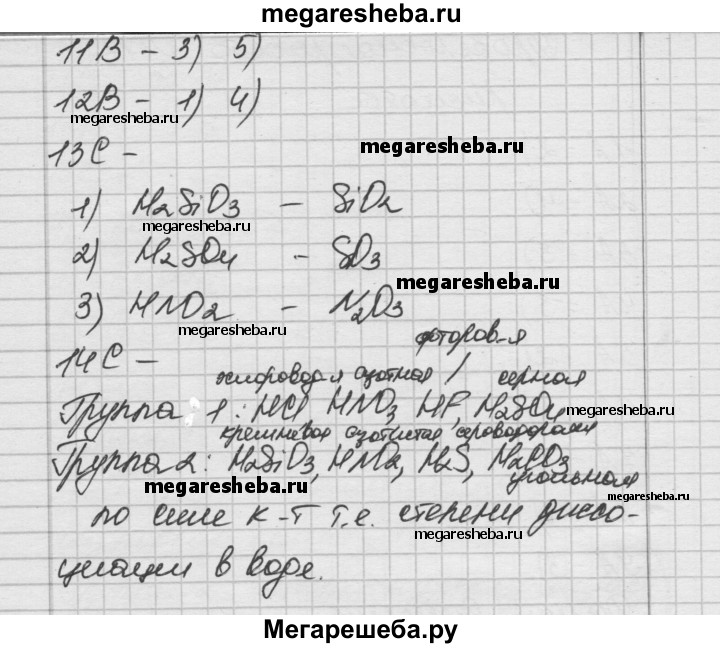 megaresheba.ru
11В – 3) 5)
12В – 1) 4)
megaresheba.ru
13С –
megaresheba.ru
1) H2SiO3 – SiO2
megaresheba.ru
2) H2SO4 – SO3
megaresheba.ru
3) HNO2 – N2O3
megaresheba.ru
фторов-я
14С –
хлоровод-я азотная / серная
Группа 1: HCl HNO3 HF, H2SO4
megaresheba.ru
кремневая азотистая сероводородная
Группа 2: H2SiO3, HNO2, H2S, H2CO3
угольная
megaresheba.ru
megaresheba.ru
по силе к-т т.е. степени диссо-
megaresheba.ru
циации в воде.
Мегарешеба.ру